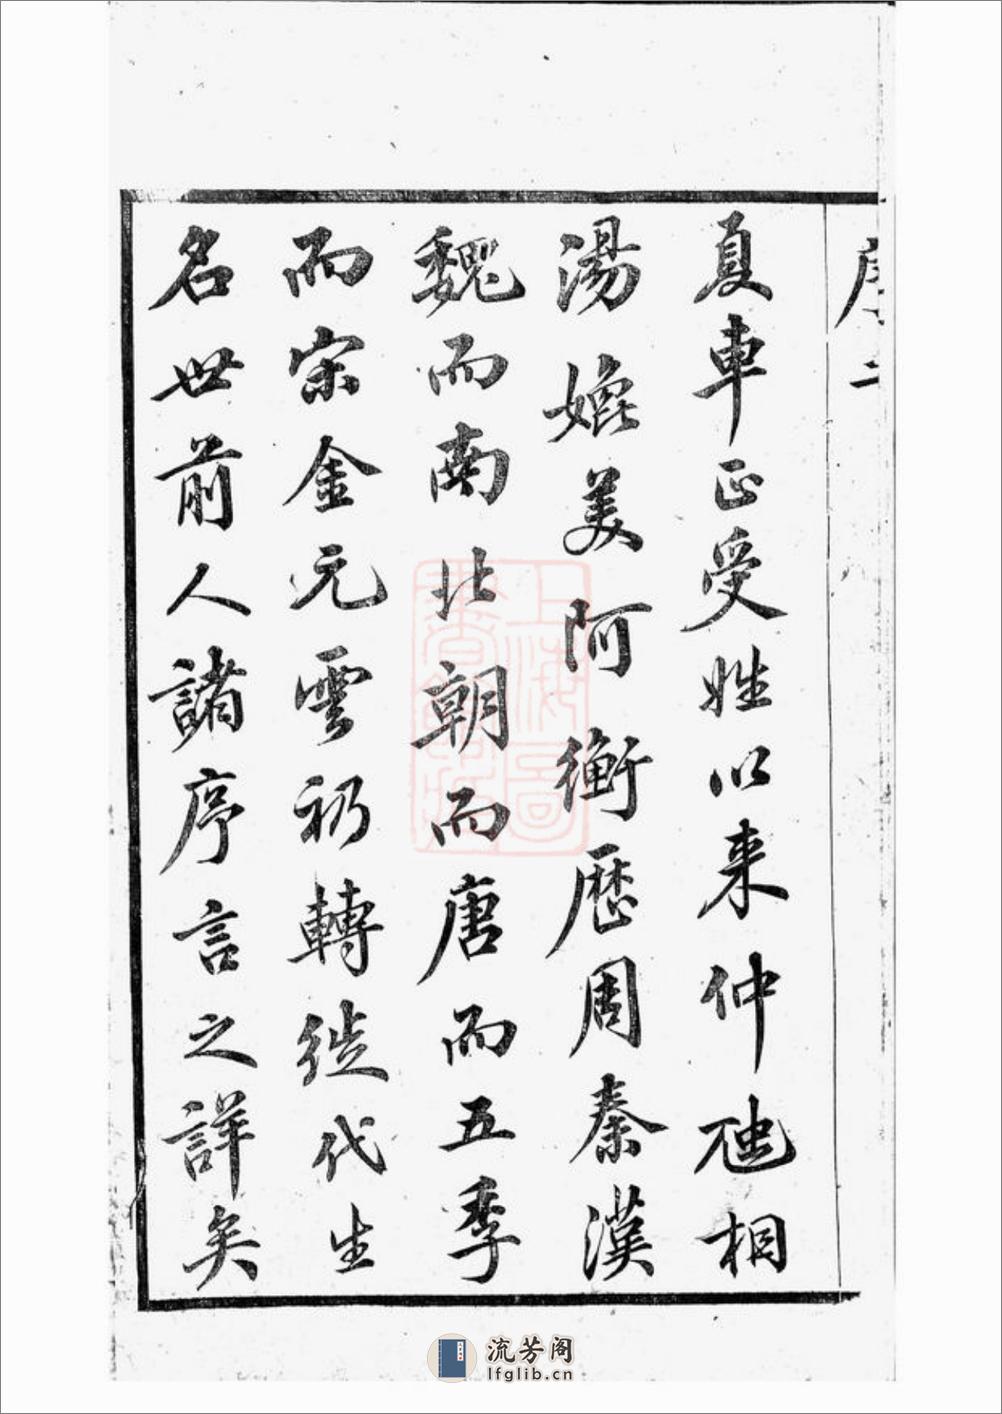 序二
夏車正受姓以来仲虺相
湯媲美阿衡歴周秦漢
魏而南北朝而唐而五季
而宋金元雲礽轉徙代生
名世前人諸序言之詳矣
流芳阁
lfglib.cn